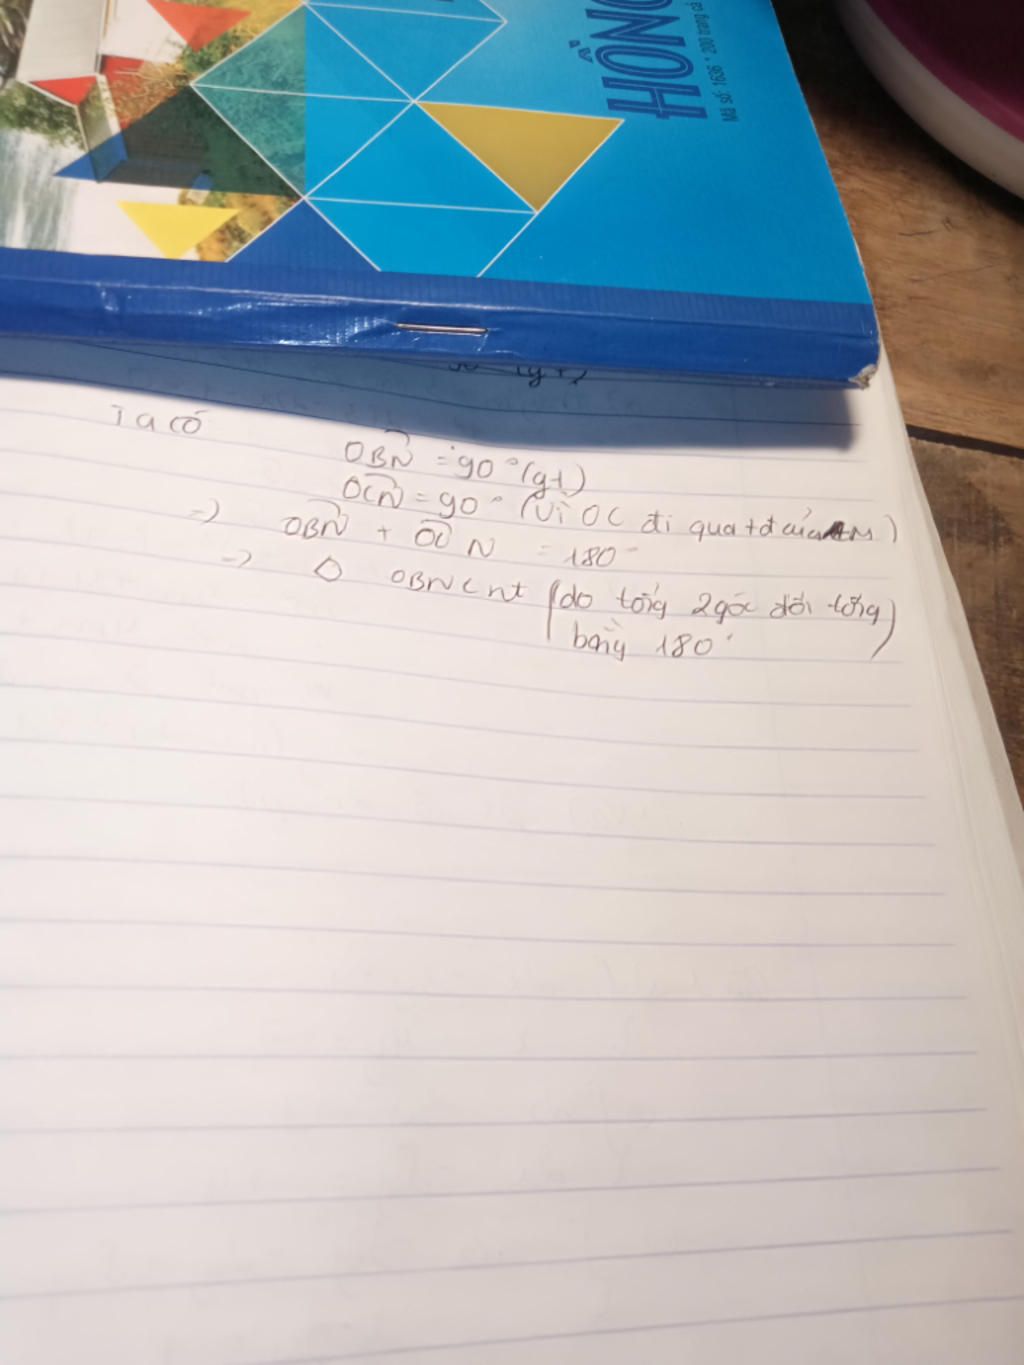 HỒNG
Mã số: 1636 * 200 trang cả
Ta có
OBN = 90° (gt)
OCN = 90° (vì OC đi qua tđ của M)
=> OBN + OCN = 180°
=> ◊ OBNC nt (do tổng 2 góc đối tổng
bằng 180°)